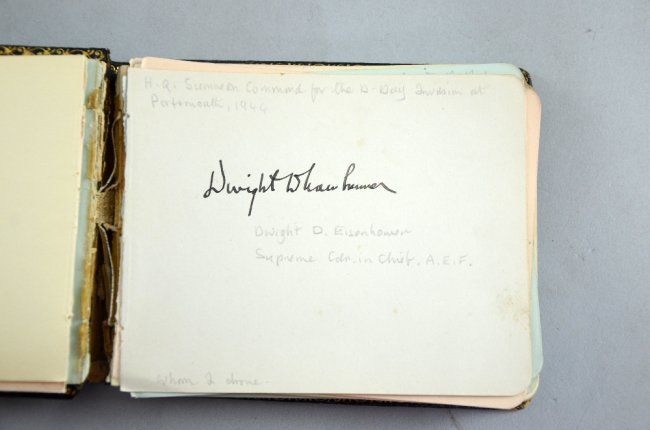 H.Q. Supreme Command for the D-Day Invasion at
Portsmouth, 1944
Dwight D Eisenhower
Dwight D. Eisenhower
Supreme Cdr. in Chief. A.E.F.
whom I drove.